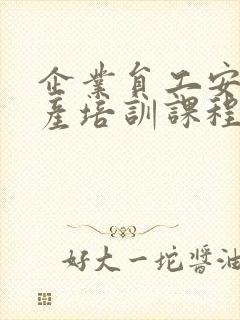 企業員工安
産培訓課程
好大一坨醬油